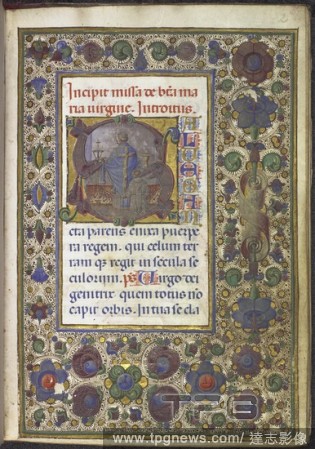 2
Incipit missa de bẽ ma
ria virgine. Introitus.
SALVE SAN
cta parens enixa puerpe
ra regem. qui celum ter
ram qꝫ regit in secula se
culorum. ps Virgo dei
genitrix quem totus nõ
capit orbis. In tua se cla
TPG
www.tpgnews.com/ 達志影像